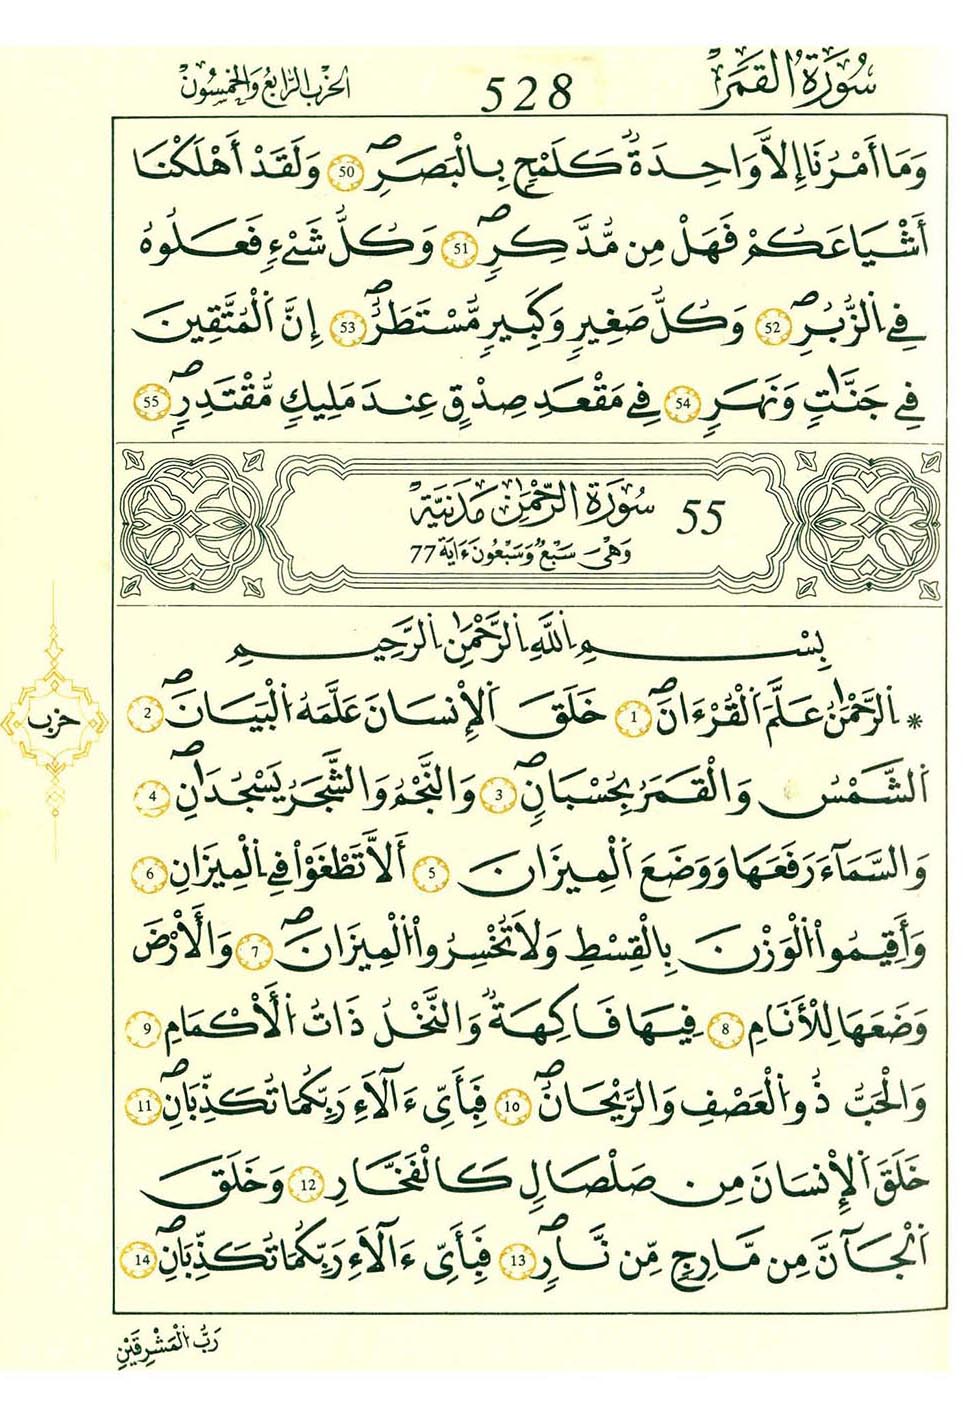 سُورَةُ الْقَمَر 528 الحزب الرّابع والخمسون
وَمَا أَمْرُنَا إِلاَّ وَاحِدَةٌ كَلَمْحٍ بِالْبَصَرِ صـ 50 وَلَقَدْ أَهْلَكْنَا
أَشْيَاعَكُمْ فَهَلْ مِن مُّدَّكِرٍ صـ 51 وَكُلُّ شَےْءٍ فَعَلُوهُ
فِے اِ۬لزُّبُرِ صـ 52 وَكُلُّ صَغِيرٍ وَكَبِيرٍ مُّسْتَطَرٌ صـ 53 إِنَّ اَ۬لْمُتَّقِينَ
فِے جَنَّٰتٍ وَنَهَرٍ 54 فِے مَقْعَدِ صِدْقٍ عِندَ مَلِيكٍ مُّقْتَدِرٍ صـ 55
55 سُورَةُ الرَّحْمٰنِ مَدَنِيَّة
وَهْيَ سَبْعٌ وَسَبْعُونَ ءَايَة 77
بِسْمِ اِ۬للَّهِ اِ۬لرَّحْمَٰنِ اِ۬لرَّحِيمِ
* اِ۬لرَّحْمَٰنُ عَلَّمَ اَ۬لْقُرْءَانَ صـ 1 خَلَقَ اَ۬لْإِنْسَانَ عَلَّمَهُ اُ۬لْبَيَانَ صـ 2
اَ۬لشَّمْسُ وَالْقَمَرُ بِحُسْبَانٍ صـ 3 وَالنَّجْمُ وَالشَّجَرُ يَسْجُدَٰنِ صـ 4
وَالسَّمَآءَ رَفَعَهَا وَوَضَعَ اَ۬لْمِيزَانَ 5 أَلاَّ تَطْغَوْاْ فِے اِ۬لْمِيزَانِ 6
وَأَقِيمُواْ اُ۬لْوَزْنَ بِالْقِسْطِ وَلاَ تُخْسِرُواْ اُ۬لْمِيزَانَ صـ 7 وَالَارْضَ
وَضَعَهَا لِلْأَنَامِ 8 فِيهَا فَاكِهَةٌ وَالنَّخْلُ ذَاتُ اُ۬لْأَكْمَامِ 9
وَالْحَبُّ ذُو اُ۬لْعَصْفِ وَالرَّيْحَانُ صـ 10 فَبِأَيِّ ءَالَآءِ رَبِّكُمَا تُكَذِّبَانِ صـ 11
خَلَقَ اَ۬لْإِنْسَانَ مِن صَلْصَالٍ كَالْفَخَّارِ 12 وَخَلَقَ
اَ۬لْجَآنَّ مِن مَّارِجٍ مِّن نَّارٍ صـ 13 فَبِأَيِّ ءَالَآءِ رَبِّكُمَا تُكَذِّبَانِ صـ 14
حزب
رَبُّ اُ۬لْمَشْرِقَيْنِ